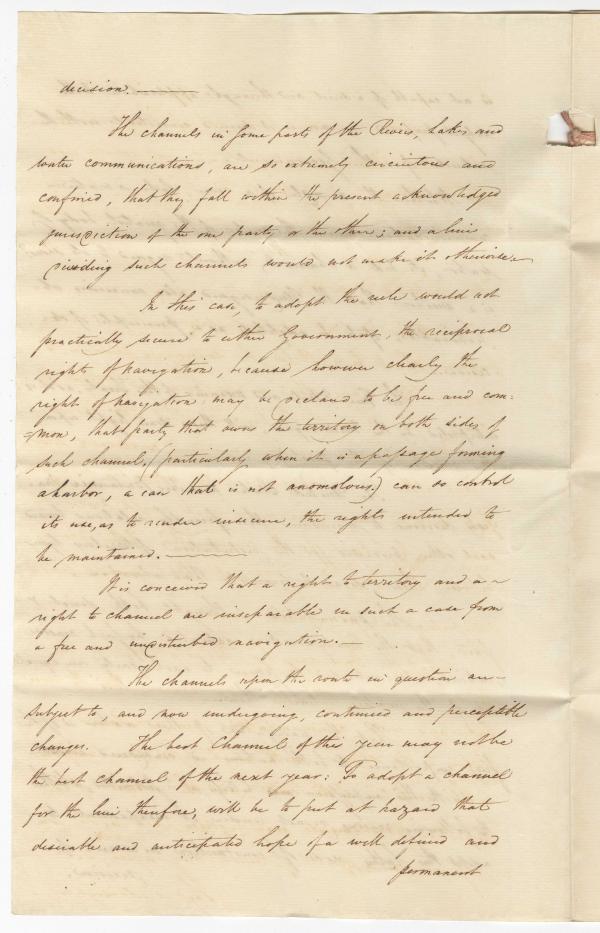 decision. ———
The channels in some parts of the Rivers, Lakes and
water communications, are so extremely circuitous and
confined, that they fall within the present acknowledged
jurisdiction of the one party or the other; and a line
dividing such channels would not make it otherwise.–
In this case, to adopt the rule would not
practically secure to either Government, the reciprocal
rights of navigation, because however clearly the
right of navigation may be declared to be free and com=
=mon, that party that owns the territory on both sides of
such channel, (particularly when it is a passage forming
a harbor, a case that is not anomolous,) can so control
its use, as to render insecure, the rights intended to
be maintained. ———
It is conceived that a right to territory and a –
right to channel are inseparable in such a case from
a free and undisturbed navigation. —
The channels upon the route in question are –
subject to, and now undergoing, continued and perceptible
changes. The best Channel of this year may not be
the best channel of the next year: To adopt a channel
for the line therefore, will be to put at hazard that
desirable and anticipated hope of a well defined and
permanent